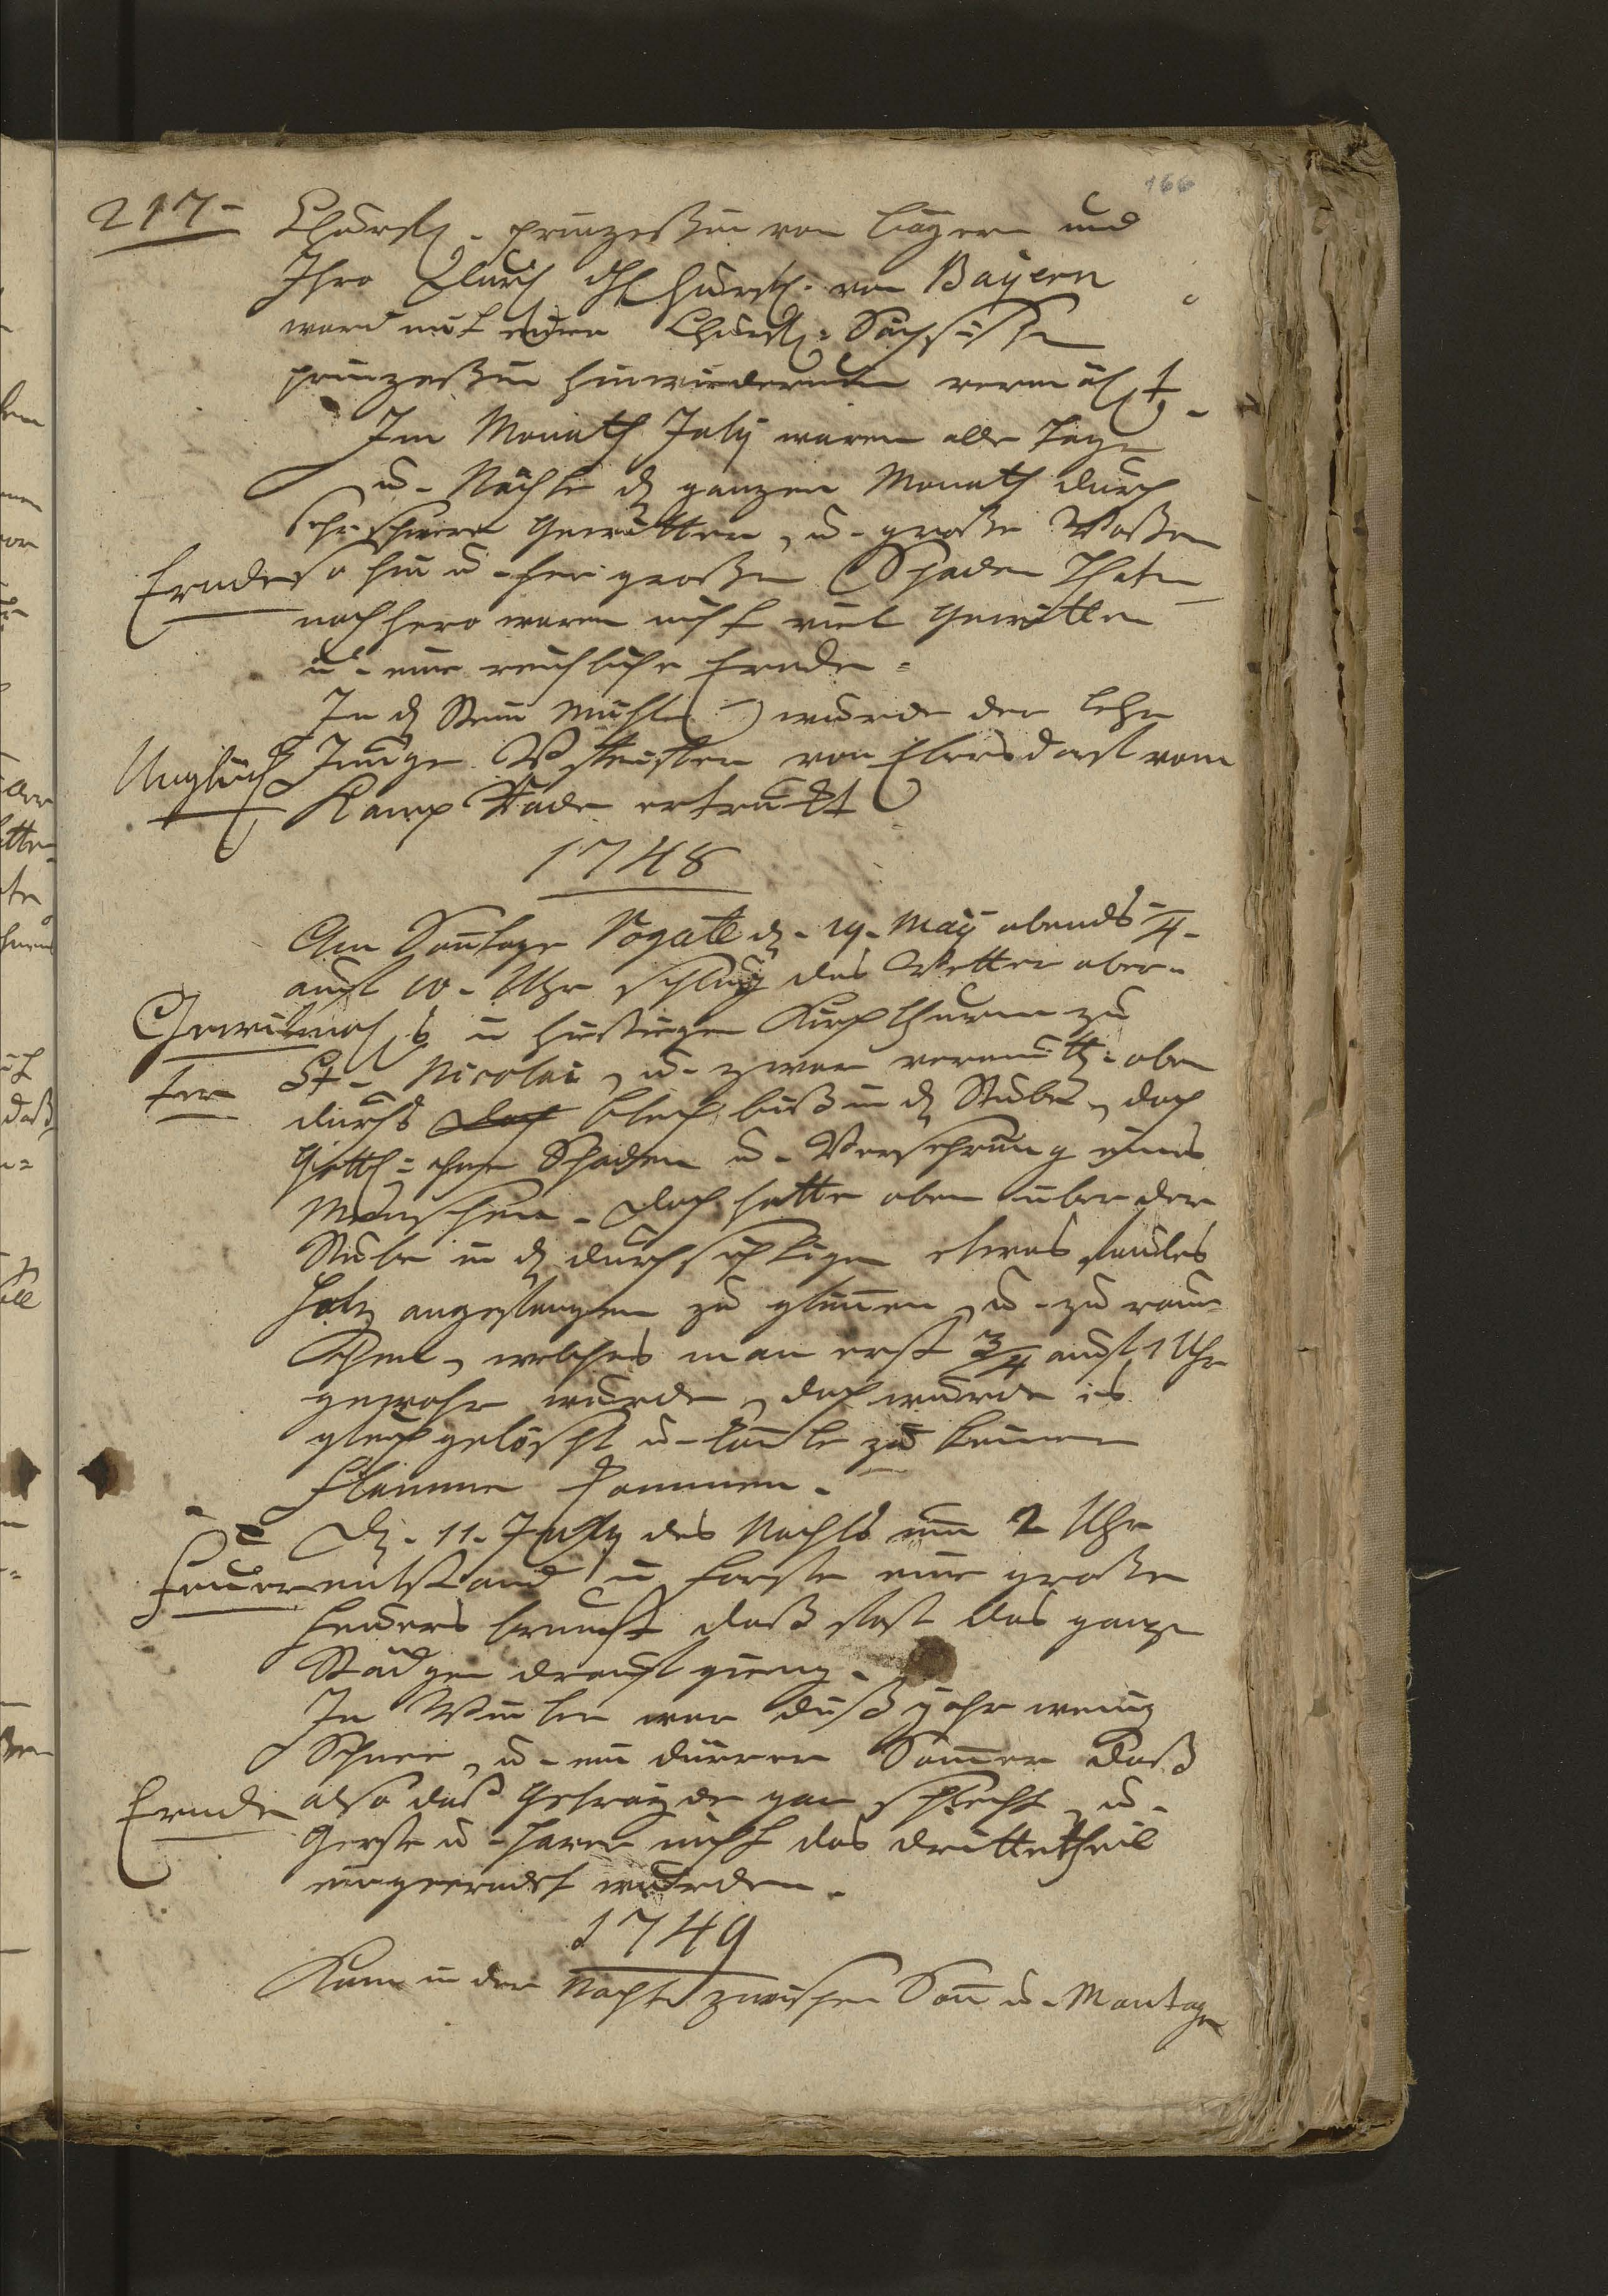 166
217-
Churfl. Prinzeßin von Bayern und
Ihro Durchl. Churfl. von Bayern
ward mit einer Churfl. Sächsischen
Prinzeßin hinwiederum vermählt.
Im Monath July waren alle Tage
u. Nächte dz ganzen Monath durch
sehr schwere Gewitter, u. große Waßer
Ernde
so hin u. her großen Schaden Thaten
nachhero waren nicht viel Gewitter
u. eine reichliche Ernde.
In dz Stein Mühle ( ) wurde der Lehr
Unglück
Junge von Ebersdorf vom
Kamp Rade ertruckt
1748
Am Sontage Rogate dz. 19. May abends /4.
auf 10. Uhr schlug das Wetter aber-
Gewit
mahls in hiesigen Kirchthurm zu
ter
St. Nicolai, u. zwar vermuthl. oben
durchs Blech biß in dz Stube, doch
Gottl. ohne Schaden u. Versehrung eines
Menschen. doch hatte oben über der
Stube in dz durchsichtigen etwas faules
Holz angefangen zu glimmen, u. zu rau-
chen, welches man erst 3/4 auf 1 Uhr
gewahr wurde, doch wurde es
gleich gelöscht u. konte zu keiner
Flamme kommen.
Dz. 11. July des Nachts um 2 Uhr
Feuer
entstand in Forste eine große
Feuers brunst daß fast das ganze
Städgen drauf gieng.
In Winter war diß Jahr wenig
Schnee, u. ein dürrer Sommer daß
Ernde
also das Getrayde gar schlecht, u.
Gerste u. Haver nicht das drittetheil
eingeerndet wurden.
1749
Kam in der Nacht zwischen Son u. Montage